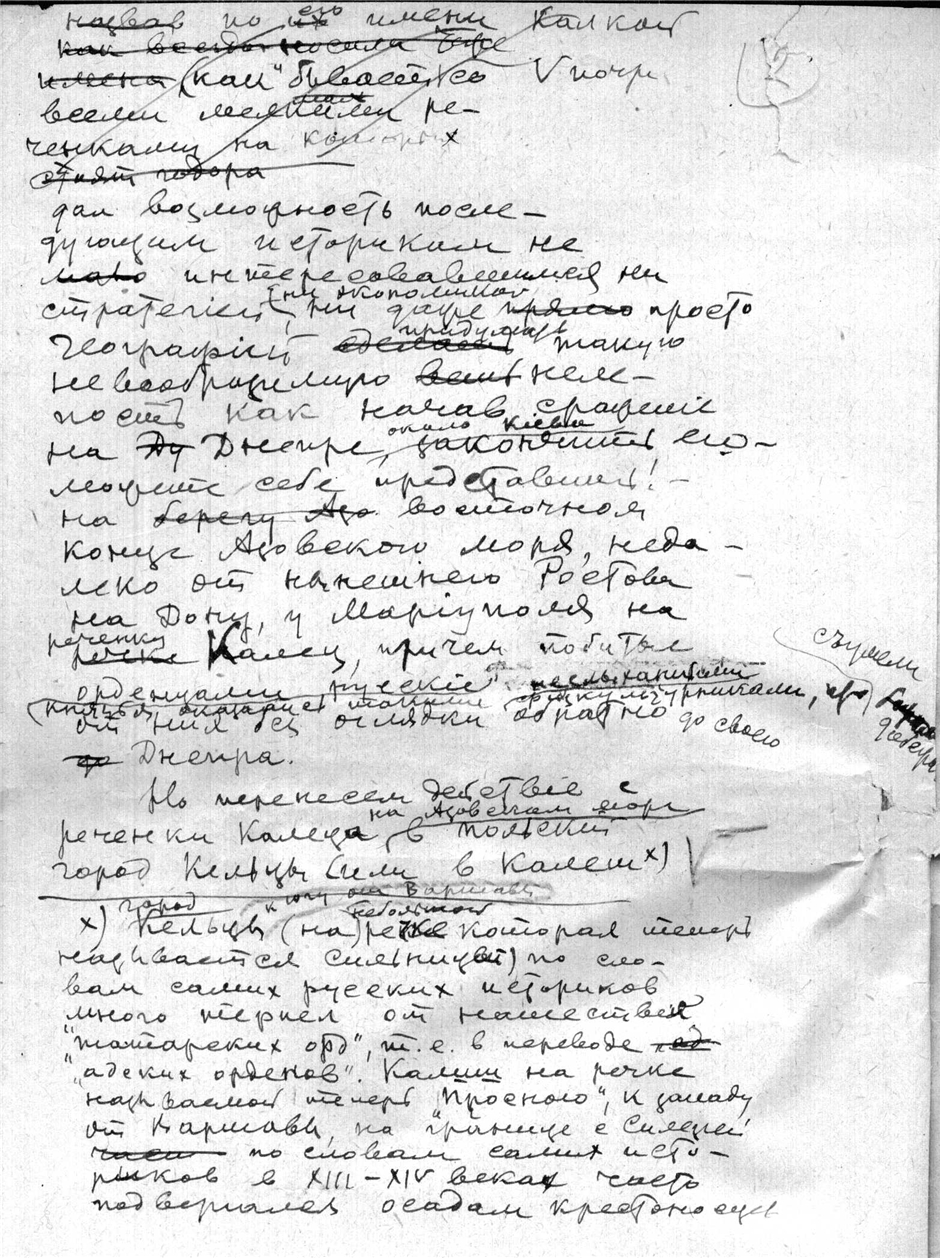 назвав по его имени Калкой
как всегда носили
имена (как бывает со
всеми мелкими ре-
ченками на которых
стоят города
дал возможность после-
дующим историкам не
мало интересовавшимся ни
стратегией, ни экономикой
ни даже прямо просто
Географией придумать такую
невообразимую нелe-
пость как начав сражение
на Днепре, около Кіева закончить его-
можете себе представить! -
на берегу Азо восточном
конце Азовского моря, неда-
леко от нынешнего Ростова
на Дону, у Маріуполя на
реченку
речке Калец, причем побитые
орденцами русскіе
князья оказались такими неслыханными
физкультурниками, что сумели
от них без оглядки обратно до своего
Днепра.
Но перенесем действіе с
реченки Калеца на Азовском море
в польский
город Кельцы (или в Калеш x)
x) город Кельцы к югу от Варшавы
(на) небольшой речке которая теперь
называется Сильницей) по сло-
вам самих русских историков
много терпел от нашествия
"татарских орд", т.е. в переводе
"адских орденов". Калиш на речке
называемой теперь "Просною", к западу
от Варшавы, на границе с Силезіей
по словам самих исто-
риков в XIII-XIV веках часто
подвергался осадам крестоносцев